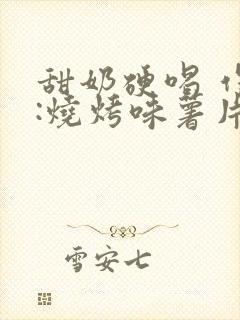 甜奶硬唱
:燒烤味薯片
雪安七